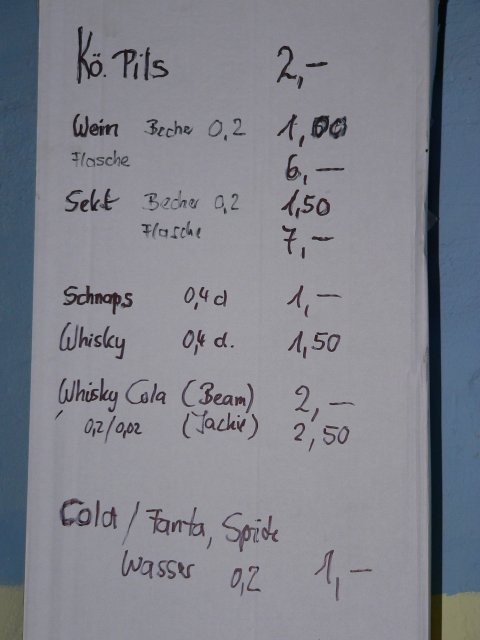 Kö. Pils 2,—
Wein Becher 0,2 1,00
Flasche 6,—
Sekt Becher 0,2 1,50
Flasche 7,—
Schnaps 0,4 d 1,—
Whisky 0,4 d. 1,50
Whisky Cola (Beam) 2,—
0,2/0,02 (Jackie) 2,50
Cola / Fanta, Spide
Wasser 0,2 1,—